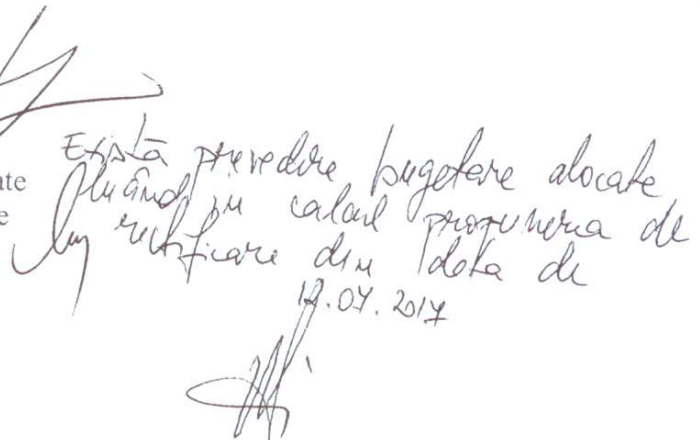 Există prevederi bugetare alocate
ate
luând în calcul propunerea de
e
rectificare din data de
12.07.2017